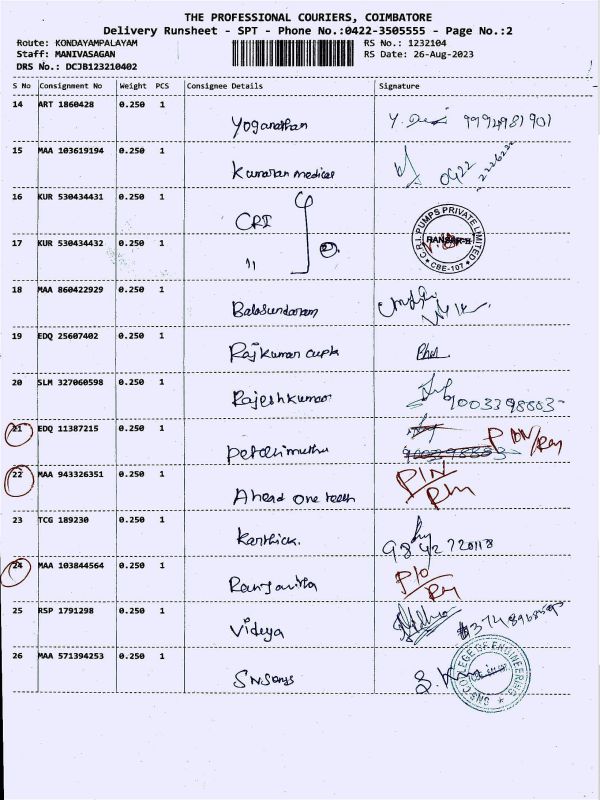 THE PROFESSIONAL COURIERS, COIMBATORE
Delivery Runsheet - SPT - Phone No.:0422-3505555 - Page No.:2
Route: KONDAYAMPALAYAM RS No.: 1232104
Staff: MANIVASAGAN RS Date: 26-Aug-2023
DRS No.: DCJB123210402
S No Consignment No Weight PCS Consignee Details Signature
14 ART 1860428 0.250 1 Yoganathan 9994981901
15 MAA 103619194 0.250 1 Kumaran medical 0422
16 KUR 530434431 0.250 1 CRI
17 KUR 530434432 0.250 1 11 2
C.R.I. PUMPS PRIVATE LIMITED
CBE-107
18 MAA 860422929 0.250 1 Balasundaram
19 EDQ 25607402 0.250 1 Rajkumar Gupta
20 SLM 327060598 0.250 1 Rajeshkumar 9003398883
21 EDQ 11387215 0.250 1
22 MAA 943326351 0.250 1 Ahead one teeth P/N
23 TCG 189230 0.250 1 Karthick. 9842720118
24 MAA 103844564 0.250 1 Ranjanitha P/O
25 RSP 1791298 0.250 1 Videya
26 MAA 571394253 0.250 1 SNSengg
SNS COLLEGE OF ENGINEERING